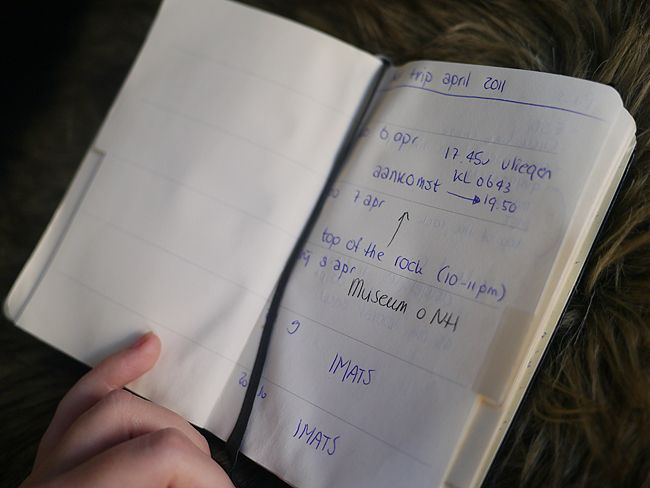 trip april 2011
6 apr 17.45u vliegen
KL 0643
aankomst → 19.50
7 apr
top of the rock (10-11pm)
8 apr
Museum o NH
9
IMATS
10
IMATS